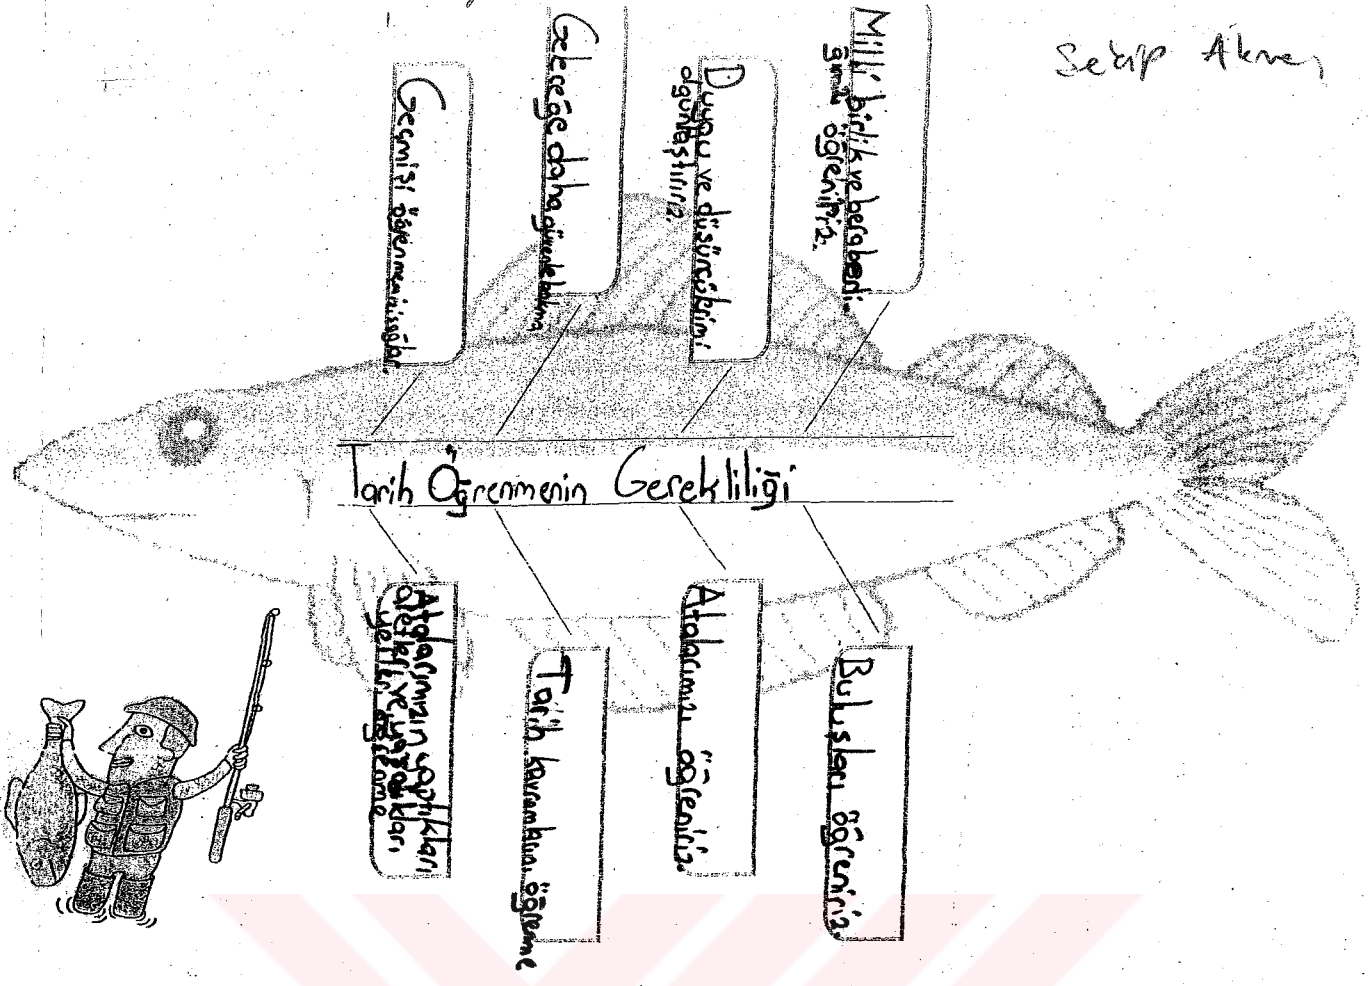 Geçmişi öğrenmemizi sağlar.
Geleceğe daha güvenle bakma
Duygu ve düşüncelerimi
olgunlaştırırız.
Milli birlik ve beraberli-
ğimizi öğreniriz.
Tarih Öğrenmenin Gerekliliği
Atalarımızın yaptıkları
aletleri ve yaşadıkları
yerleri öğrenme
Tarih kavramlarını öğrenme
Atalarımızı öğreniriz.
Buluşları öğreniriz.